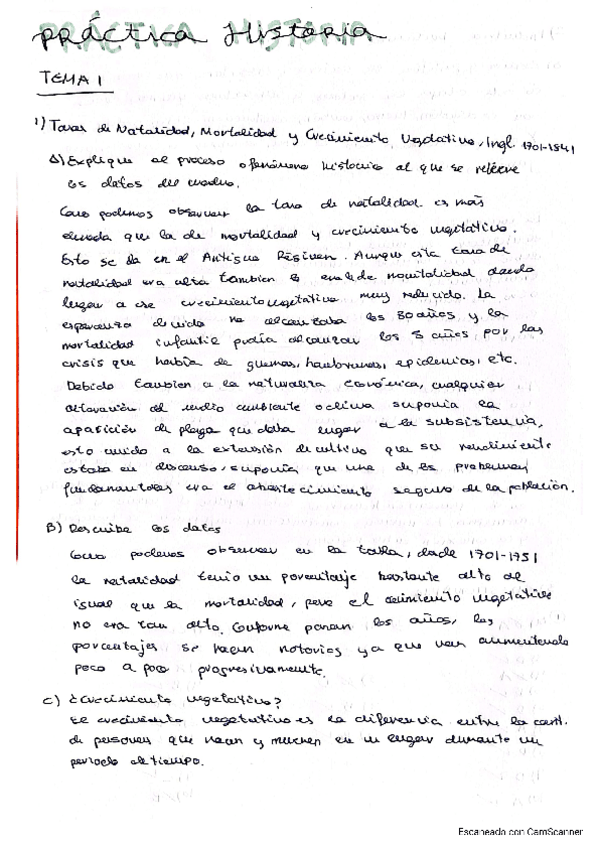 PRÁCTICA HISTORIA
práctica Historia
TEMA 1
1) Tasas de Natalidad, Mortalidad y Crecimiento Vegetativo, Ingl. 1701-1841
A) Explique el proceso o fenómeno histórico al que se refiere
los datos del cuadro.
Como podemos observar la tasa de natalidad es más
elevada que la de mortalidad y crecimiento vegetativo.
Esto se da en el Antiguo Régimen. Aunque esta tasa de
natalidad era alta tambien lo era la de mortalidad dando
lugar a ese crecimiento vegetativo muy reducido. La
esperanza de vida no alcanzaba los 30 años y la
mortalidad infantil podía alcanzar los 5 años por las
crisis que había de guerras, hambrunas, epidemias, etc.
Debido tambien a la naturaleza económica, cualquier
alteración del medio ambiente o clima suponía la
aparición de plaga que daba lugar a la subsistencia,
esto unido a la extensión de cultivo que su rendimiento
estaba en descenso, suponía que uno de los problemas
fundamentales era el abastecimiento seguro de la población.
B) Describe los datos
Como podemos observar en la tabla, desde 1701-1751
la natalidad tenía un porcentaje bastante alto al
igual que la mortalidad, pero el crecimiento vegetativo
no era tan alto. Conforme pasan los años, los
porcentajes se hacen notorios ya que van aumentando
poco a poco progresivamente.
C) ¿Crecimiento vegetativo?
El crecimiento vegetativo es la diferencia entre la cant.
de personas que nacen y mueren en un lugar durante un
periodo de tiempo.
Escaneado con CamScanner